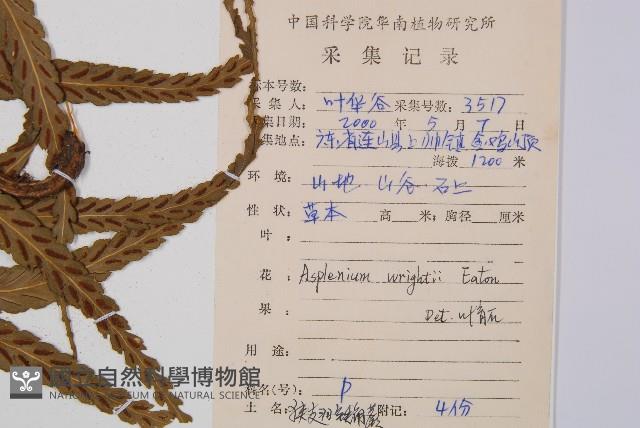 中国科学院华南植物研究所
采集记录
标本号数:
采集人: 叶华谷 采集号数: 3517
采集日期: 2000 年 5 月 7 日
采集地点: 广东省连山县上帅镇 山顶
海拨 1200 米
环境: 山地 山谷 石上
性状: 草本 高 米; 胸径 厘米
叶:
花: Asplenium wrightii Eaton
果: Det. 叶育石
用途:
姓名(号): P
土名: 狭翅铁角蕨 附记: 4份
國立自然科學博物館
NATIONAL MUSEUM OF NATURAL SCIENCE